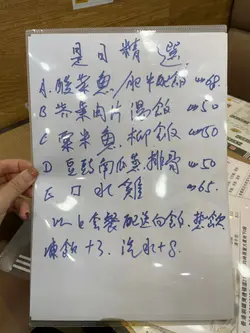 是日精選
A. 酸菜魚/肥牛配飯 68.
B 芥菜肉片湯飯 50
C 粟米魚柳飯 50
D 豆豉南瓜蒸排骨 50
E 口水雞 65.
以上套餐配送白飯，熱飲
凍飲+3. 汽水+8.